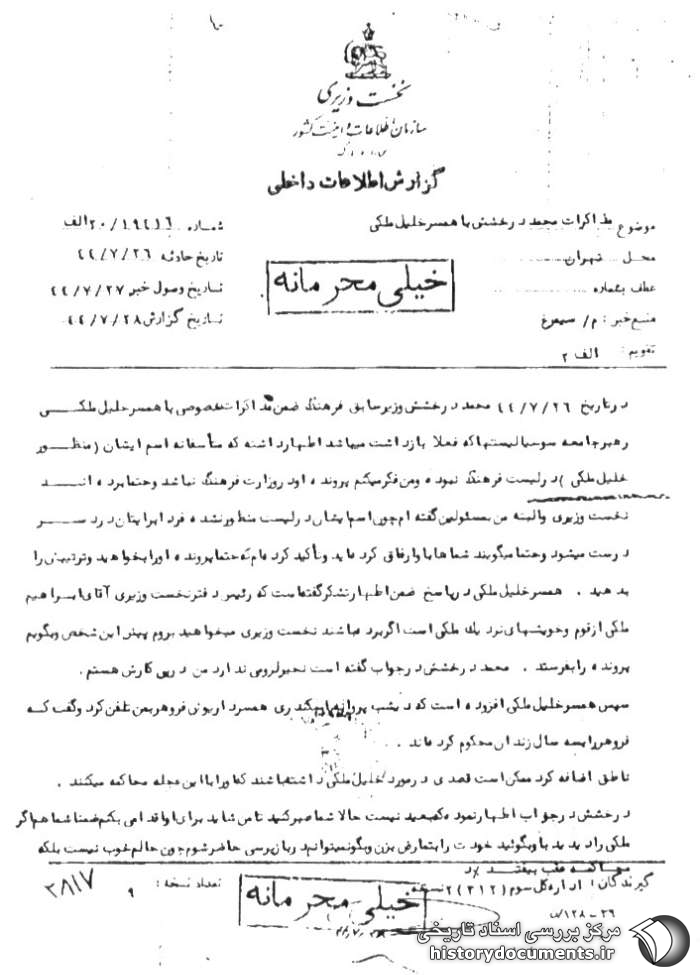 نخست وزیری
سازمان اطلاعات و امنیت کشور
گزارش اطلاعات داخلی
موضوع مذاکرات محمد درخشش با همسر خلیل ملکی
شماره ۲۰/۱۹۴۱۶ الف
محل تهران
تاریخ حادثه ۴۴/۷/۲۶
عطف بشماره
تاریخ وصول خبر ۴۴/۷/۲۷
منبع خبر: م/ سیمرغ
تاریخ گزارش ۴۴/۷/۲۸
تقویم: الف ۲
خیلی محرمانه
در تاریخ ۴۴/۷/۲۶ محمد درخشش وزیر سابق فرهنگ ضمن مذاکرات خصوصی با همسر خلیل ملکی
رهبر جامعه سوسیالیستها که فعلا بازداشت میباشد اظهار داشته که متأسفانه اسم ایشان (منظور
خلیل ملکی) در لیست فرهنگ نبوده و من فکر میکنم پرونده او در وزارت فرهنگ نباشد و حتما برده اند
نخست وزیری و البته من بمسئولین گفته ام چون اسم ایشان در لیست منظور نشده فردا برایتان دردسر
درست میشود و حتما میگویند شماها با او ارفاق کرده اید و تأکید کرده ام که حتما پرونده او را بخواهید و ترتیبش را
بدهید . همسر خلیل ملکی در پاسخ ضمن اظهار تشکر گفته است که رئیس دفتر نخست وزیری آقای ابراهیم
ملکی از قوم و خویشهای نزدیک ملکی است اگر برده باشند نخست وزیری میخواهید بروم پیش این شخص و بگویم
پرونده را بفرستد . محمد درخشش در جواب گفته است نخیر لزومی ندارد من در پی کارش هستم .
سپس همسر خلیل ملکی افزوده است که دیشب پروانه اسکندری همسر داریوش فروهر بمن تلفن کرد و گفت که
فروهر را بسه سال زندان محکوم کرده اند .
ناطق اضافه کرد ممکن است قصدی در مورد خلیل ملکی داشته باشند که او را با این عجله محاکمه میکنند .
درخشش در جواب اظهار نموده که بعید نیست حالا شما صبر کنید تا من شاید برای او اقدامی بکنم ضمنا شما هم اگر
ملکی را دیدید باو بگوئید خودت را بتمارض بزن و بگو نمیتوانم در بازپرسی حاضر شوم چون حالم خوب نیست بلکه
محاکمه عقب بیفتد
گیرندگان: اداره کل سوم (۳۱۲) ۲ نسخه
تعداد نسخه: ۹
۳۸۱۷
خیلی محرمانه
۱۲۸-۳۶
مرکز بررسی اسناد تاریخی
historydocuments.ir